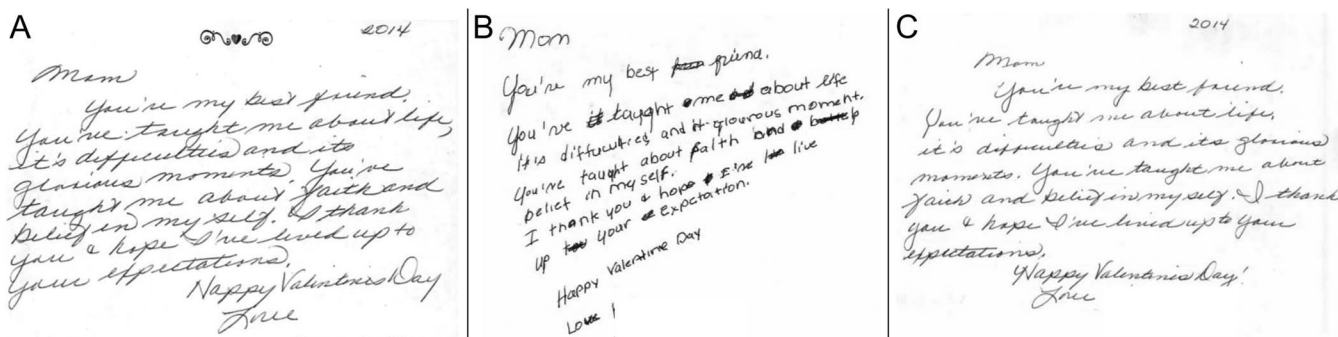 A
2014
Mom
You're my best friend.
You've taught me about life,
it's difficulties and its
glorious moments. You've
taught me about faith and
belief in my self. I thank
you & hope I've lived up to
your expectations.
Happy Valentine's Day
Love
B
Mom
You're my best friend.
You've taught me about life
It's difficulties, and it glourous moment.
You've taught about faith and
belief in my self.
I thank you & hope I've live
up your expectation.
Happy Valentine Day
Love
C
2014
Mom
You're my best friend.
You've taught me about life,
it's difficulties and its glorious
moments. You've taught me about
faith and belief in my self. I thank
you & hope I've lived up to your
expectations.
Happy Valentine's Day!
Love